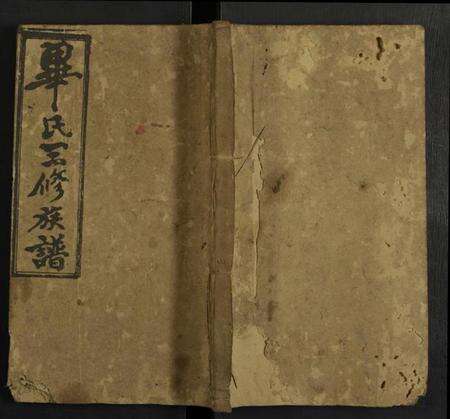 畢氏三修族譜